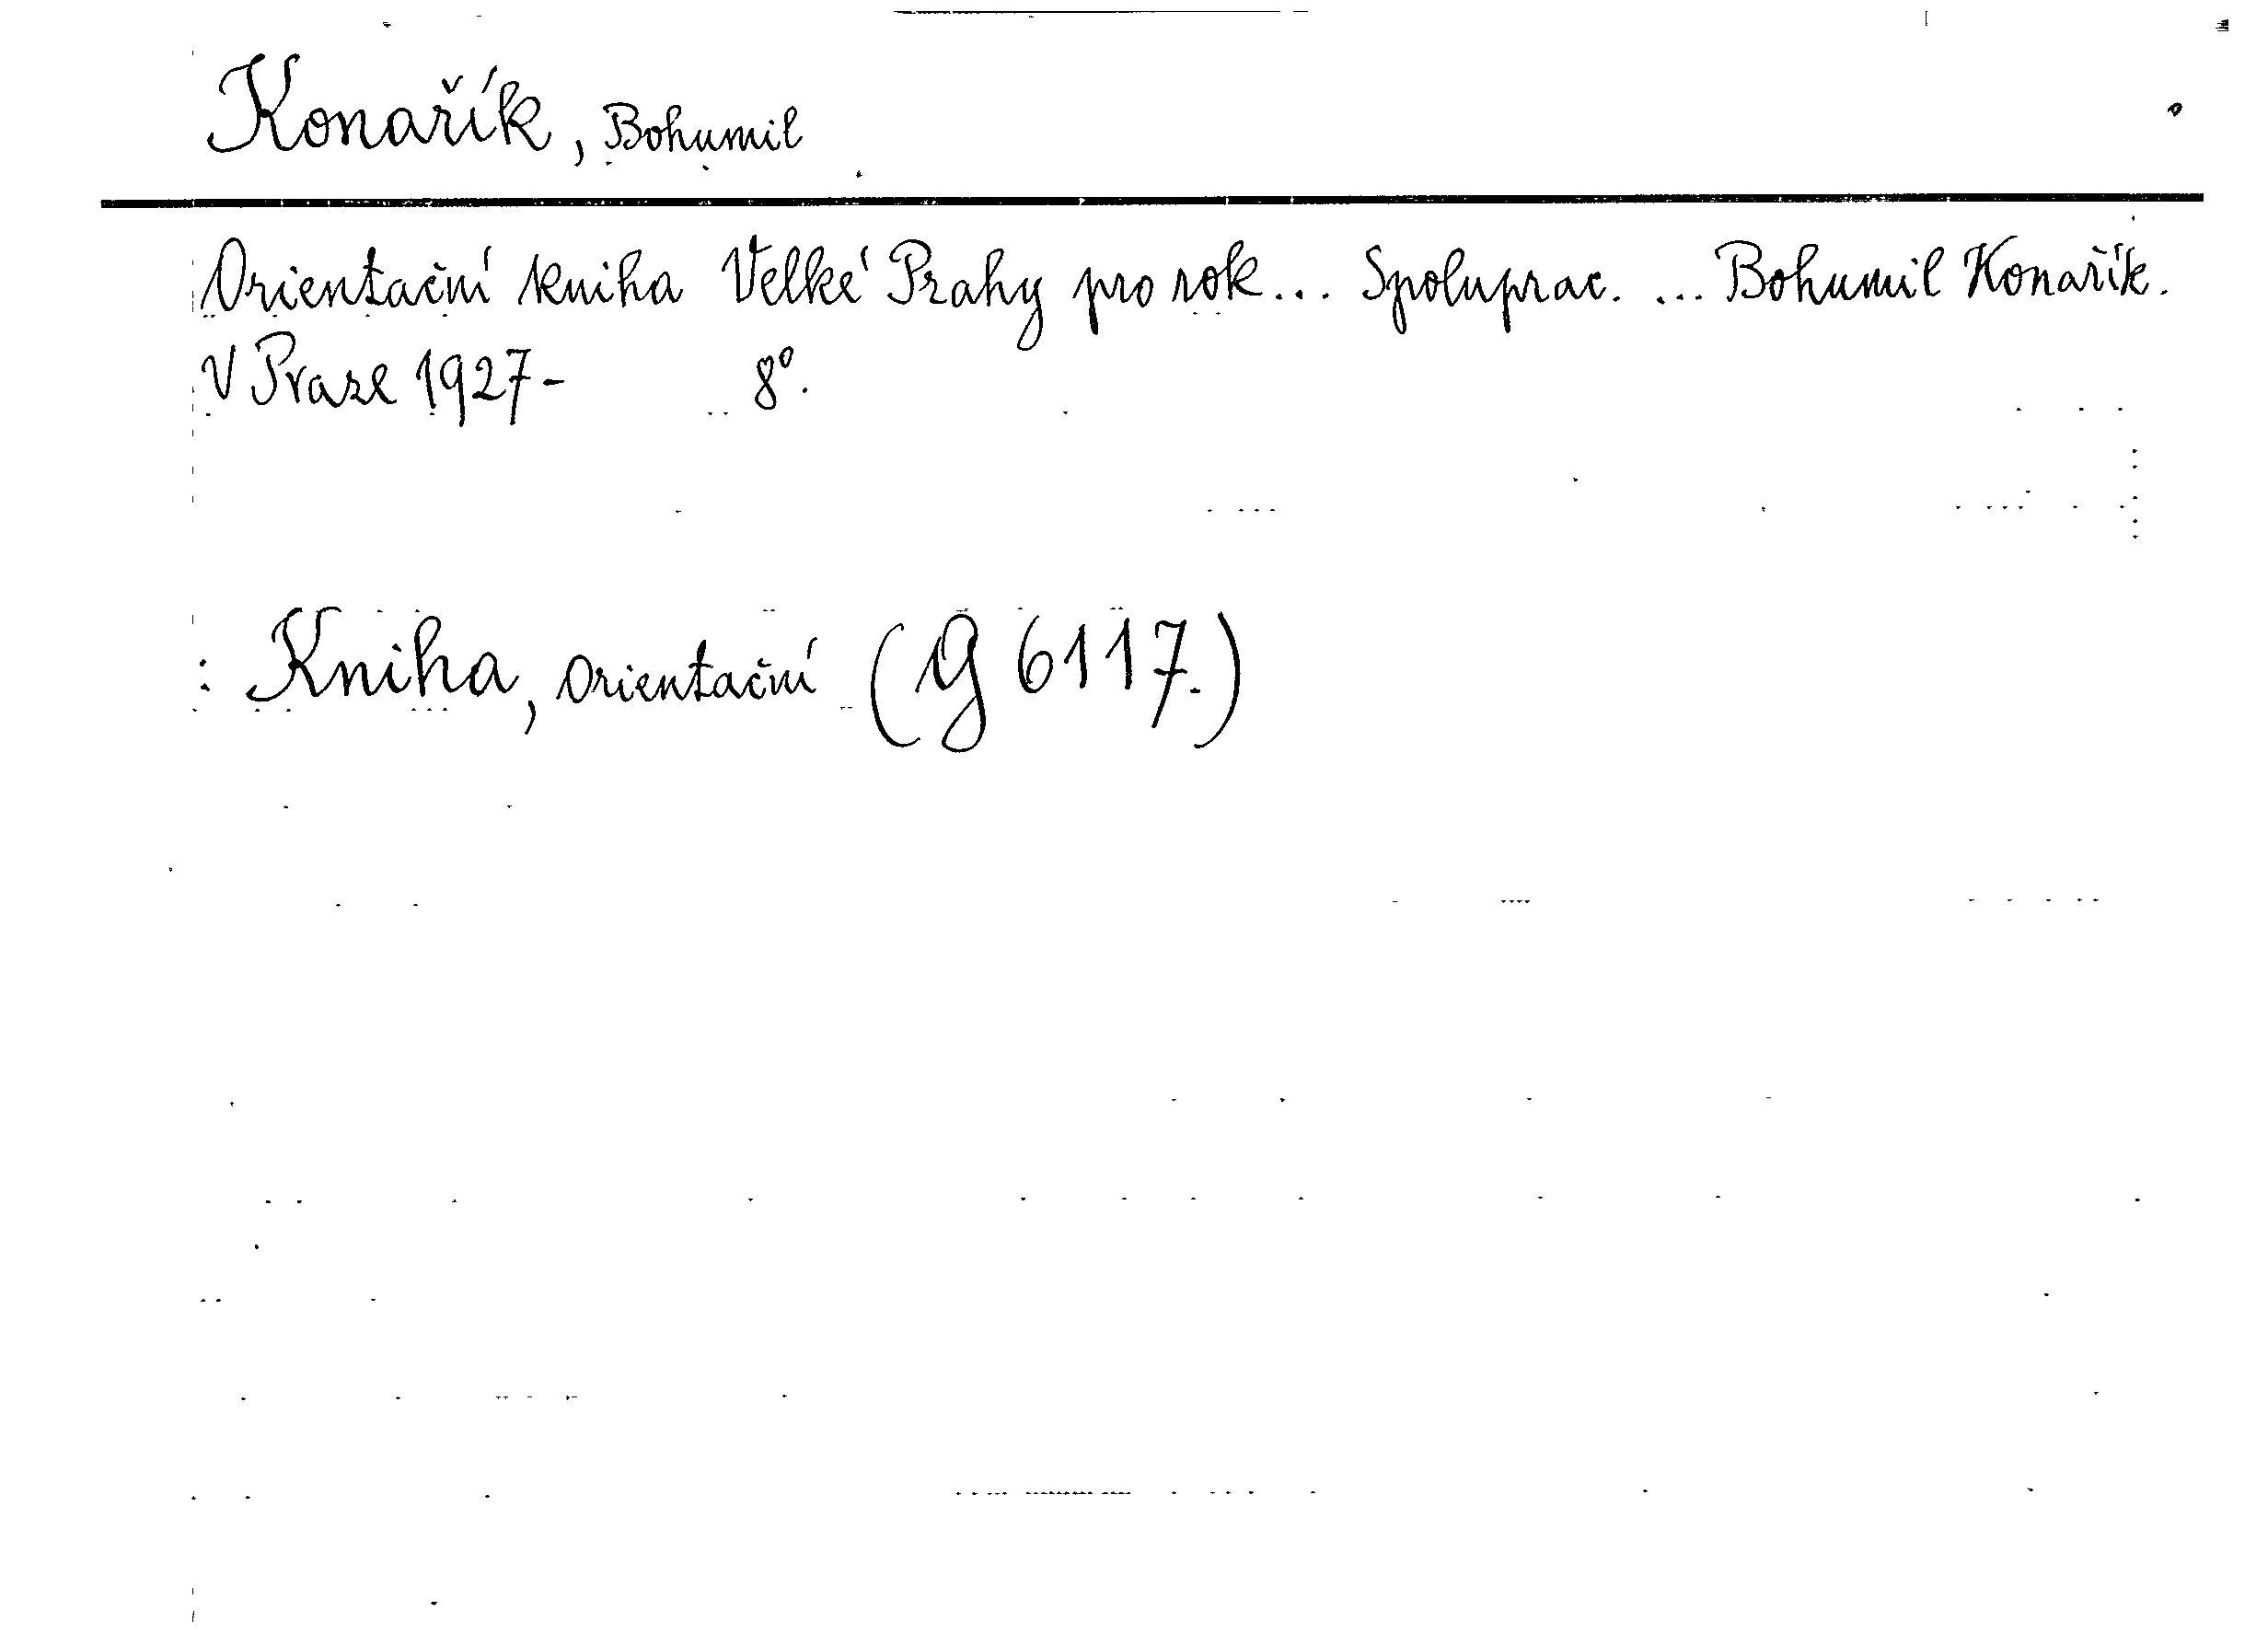 Konařík, Bohumil
Orientační kniha Velké Prahy pro rok... Spoluprac. ... Bohumil Konařík.
V Praze 1927- 8°.
: Kniha, orientační (G 6117.)